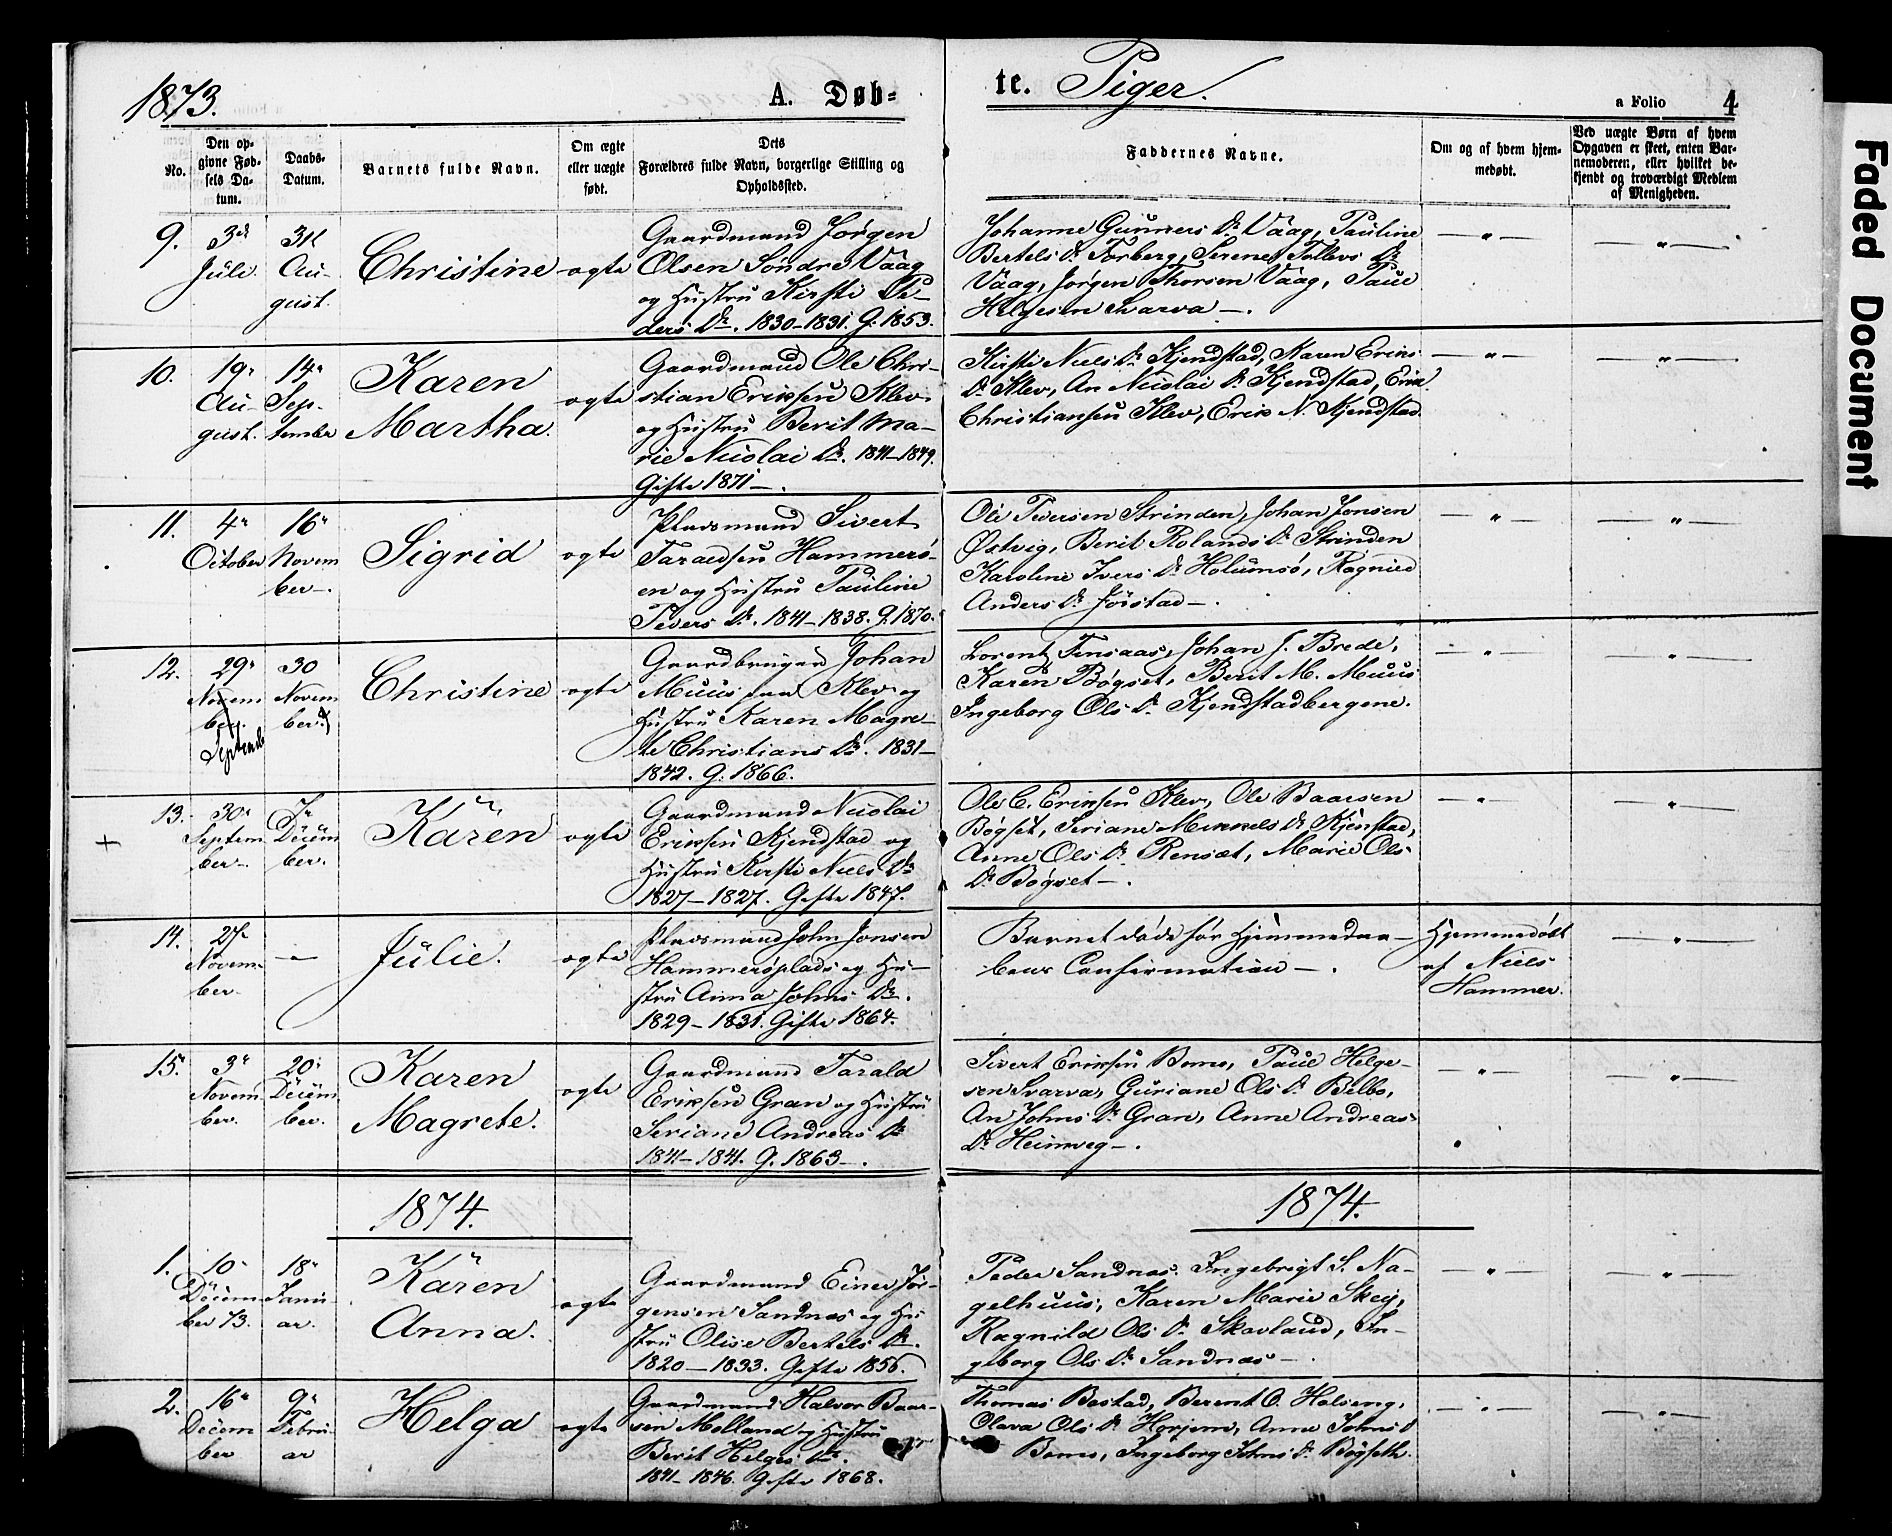 1873.
A. Døb=
te. Piger.
a Folio 4
No.
Den op-
givne Føb-
sels Da-
tum.
Daabs-
Datum.
Barnets fulde Navn.
Om ægte
eller uægte
født.
Dets
Forældres fulde Navn, borgerlige Stilling og
Opholdssted.
Faddernes Navne.
Om og af hvem hjem-
medøbt.
Ved uægte Børn af hvem
Opgaven er skeet, enten Bar-
nemoderen, eller hvilket be-
kjendt og troværdigt Medlem
af Menigheden.
9.
3die
Juli.
31te
Au-
gust.
Christine
ægte
Gaardmand Jørgen
Olsen Søndre Vaag
og Hustru Kirsti Pe-
ders Dr. 1830-1831. G. 1853.
Johanne Gunners Dr Vaag, Pauline
Bertels Dr Forberg, Serene Tollevs Dr
Vaag, Jørgen Thorsen Vaag, Paul
Helgesen Svarva -.
- " -
- " -
10.
19"
Au-
gust.
14"
Sep-
tember
Karen
Martha.
ægte
Gaardmand Ole Chri-
stian Eriksen Klev
og Hustru Berit Ma-
rie Nicolai Dr. 1841-1849.
Gifte 1871-.
Kirsti Niels Dr Kjendstad, Karen Eriks
Dr Klev, An Nicolai Dr Kjendstad, Erik
Christiansen Klev, Erik N. Kjendstad
- " -
- " -
11.
4"
October
16"
Novem
ber-.
Sigrid
ægte
Pladsmand Sivert
Taraldsen Hammersö-
en og Hustru Pauline
Ivers Dr. 1841-1838. G. 1870.
Ole Iversen Strinden, Johan Jonsen
Østvig, Berit Rolands Dr Strinden
Karoline Ivers Dr Holumsö, Ragnild
Anders Dr Jörstad-.
- " -
- " -
12.
29"
Novem
ber.
September
30
Novem
ber.
Christine
ægte
Gaardbruger Johan
Muus paa Klev og
Hustru Karen Magre-
te Christians Dr. 1831-
1842. G. 1866.
Lorentz Finsaas, Johan J. Brede,
Karen Bøgset, Berit M. Muus
Ingeborg Ols Dr. Kjendstadbergene.
- " -
"
13.
30"
Septem
ber-
7de
Decem
ber.
+
Karen
ægte
Gaardmand Nicolai
Eriksen Kjendstad og
Hustru Kirsti Niels Dr
1827-1827. Gifte 1847.
Ole C. Eriksen Klev, Ole Baarsen
Bøgset, Seriane Mikkels Dr Kjenstad,
Anne Ols Dr. Rensæt, Marie Ols-
Dr Bøgset-.
- " -
"
14.
27de
Novem-
ber-
-
Julie.
ægte
Pladsmand John Jonsen
Hammersöplads og Hu-
stru Anna Johns Dr.
1829-1831. Gifte 1864.
Barnet døde før Hjemmedaa-
bens Confirmation-.
Hjemmedøbt
af Niels
Hammer.
- " -
15.
3"
Novem
ber.
20"
Decem
ber.
Karen
Magrete.
ægte
Gaardmand Tarald
Eriksen Gran og Hustru
Seriane Andreas Dr
1841-1841. G. 1863-.
Sivert Eriksen Bomo, Paul Helge-
sen Svarva, Guriane Ols Dr Belbo,
An Johns Dr Gran, Anne Andreas
Dr Heimveg-.
- " -
"
1874.
1874.
1.
10"
Decem
ber 73.
18"
Janu-
ar.
Karen
Anna.
ægte
Gaardmand Einer Jør-
gensen Sandnæs og Hu
stru Olise Bertels Dr.
1820-1833. Gifte 1856.
Peder Sandnæs. Ingebrigt S. Na-
gelhuus, Karen Marie Skey,
Ragnild Ols Dr. Skavland, In-
geborg Ols Dr. Sandnæs-.
- " -
"
2.
16"
Decem
ber
9"
Febru-
ar
Helga
ægte
Gaardmand Halvor Baar-
sen Molland og Hustru
Berit Helges Dr.
1841-1846. Gifte 1868.
Thomas Bostad, Berent O. Halseng,
Olava Ols Dr Horjem, Anne Johns D
Bomo, Ingeborg Johns Dr. Bøgseth.
- " -
- " -
Faded Document